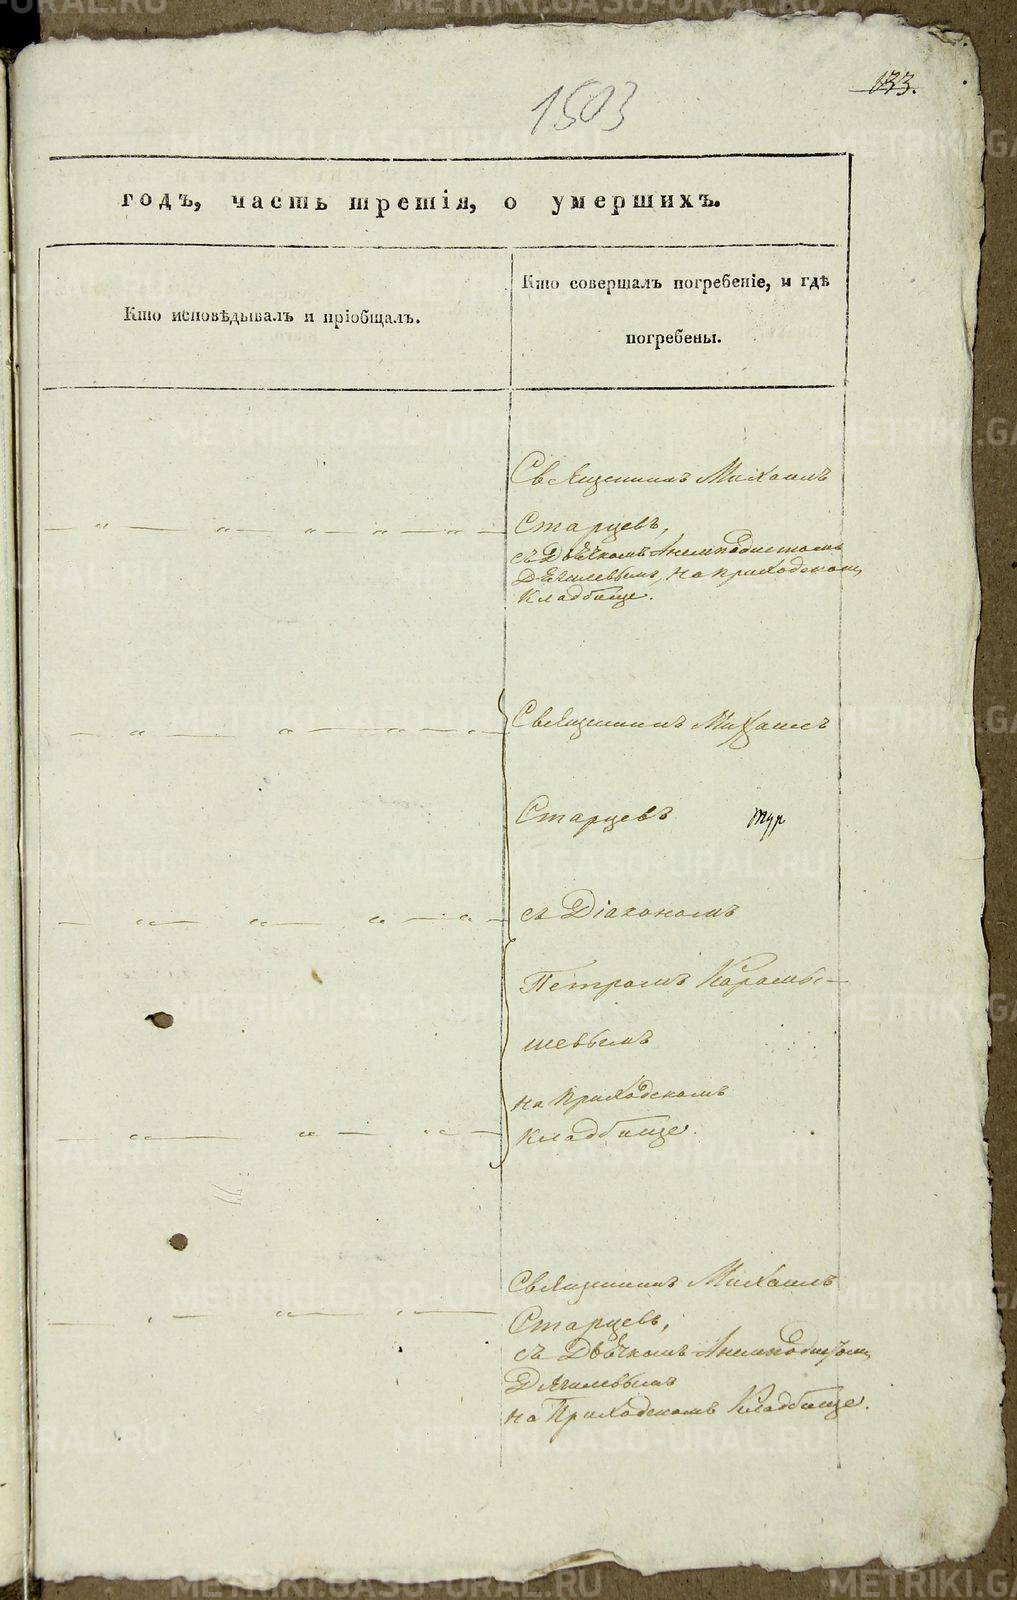 133.
1503
годъ, часть третія, о умершихъ.
Кто исповѣдывалъ и пріобщалъ.
Кто совершалъ погребеніе, и гдѣ
погребены.
Священникъ Михаилъ
Старцевъ,
съ Дьячкомъ Анемподистомъ
Дягилевымъ, на приходскомъ
Кладбище.
Священникъ Михаилъ
Старцевъ
съ Діакономъ
Петромъ Карамы-
шевымъ
на Приходскомъ
Кладбище.
Священникъ Михаилъ
Старцевъ,
съ Дьячкомъ Анемподистомъ
Дягилевымъ
на Приходскомъ Кладбище.
METRIKI.GASO-URAL.RU